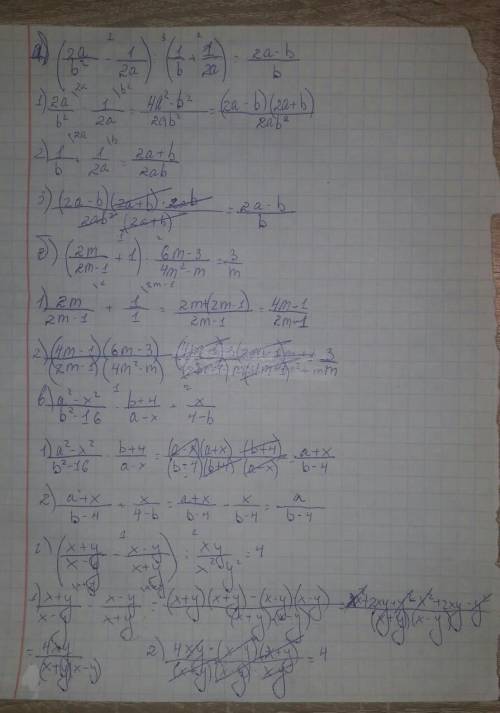 а) (2a/b² - 1/2a) : (1/b + 1/2a) = (2a-b)/b
1) 2a/b² - 1/2a = (4a²-b²)/2ab² = (2a-b)(2a+b)/2ab²
2) 1/b + 1/2a = (2a+b)/2ab
3) (2a-b)(2a+b)·2ab / 2ab²·(2a+b) = (2a-b)/b
б) (2m/(2m-1) + 1) · (6m-3)/(4m²-m) = 3/m
1) 2m/(2m-1) + 1/1 = (2m+(2m-1))/(2m-1) = (4m-1)/(2m-1)
2) (4m-1)(6m-3)/(2m-1)(4m²-m) = 3/m
в) (a²-x²)/(b²-16) · (b+4)/(a-x) + x/(4-b)
1) (a²-x²)/(b²-16) · (b+4)/(a-x) = (a-x)(a+x)·(b+4)/(b-4)(b+4)·(a-x) = (a+x)/(b-4)
2) (a+x)/(b-4) + x/(4-b) = (a+x)/(b-4) - x/(b-4) = a/(b-4)
г) ((x+y)/(x-y) - (x-y)/(x+y)) : xy/(x²-y²) = 4
1) (x+y)/(x-y) - (x-y)/(x+y) = ((x+y)(x+y)-(x-y)(x-y))/(x+y)(x-y) = (x²+2xy+y²-x²+2xy-y²)/(x+y)(x-y)
= 4xy/(x+y)(x-y) 2) 4xy·(x-y)(x+y)/(x+y)(x-y)·xy = 4